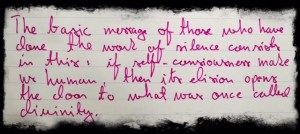 The basic message of those who have
done the work of silence consists
in this: if self-consciousness make
us human, then its elision opens
the door to what was once called
divinity.